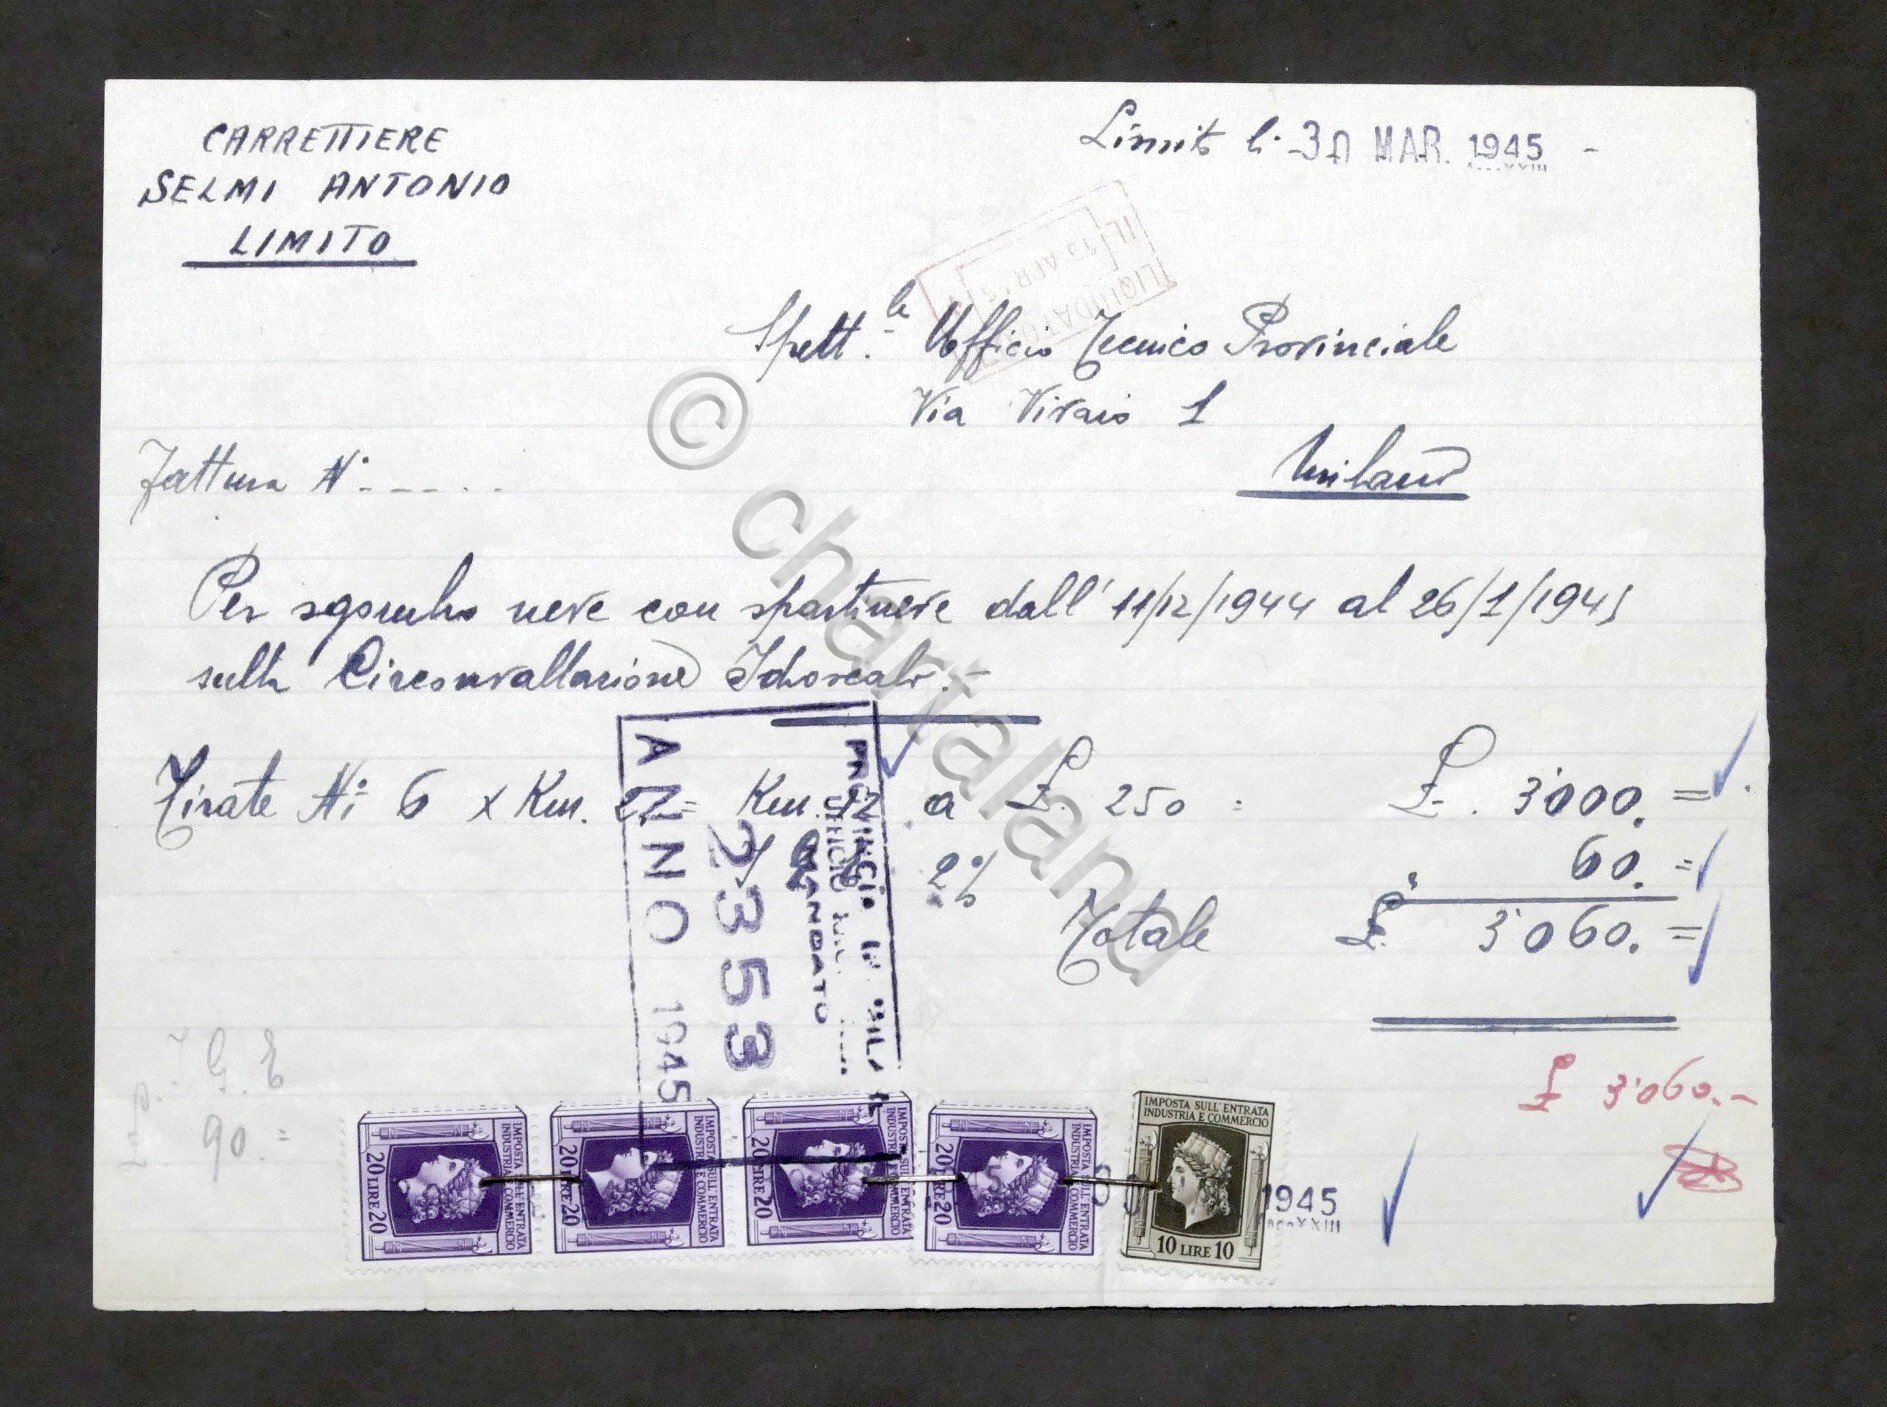 CARRETTIERE
SELMI ANTONIO
LIMITO
Limito li. 30 MAR. 1945
Anno XXIII
LIQUIDATO
IL 13 APR.
Spett.le Ufficio Tecnico Provinciale
Via Vivaio 1
Milano
Fattura N° - - - - -
Per sgombro neve con spartineve dall' 11/12/1944 al 26/1/1945
sulla Circonvallazione Idroscalo.-
Tirate N° 6 x Km. 2 = Km. 12 a £. 250 = £. 3'000. =
2% 60. =
Totale £. 3'060. =
PROVINCIA
UFFICIO
MANDATO
23353
ANNO 1945
£ 3'060.-
G.E
90. =
IMPOSTA SULL'ENTRATA INDUSTRIA E COMMERCIO
20 LIRE 20
IMPOSTA SULL'ENTRATA INDUSTRIA E COMMERCIO
20 LIRE 20
IMPOSTA SULL'ENTRATA INDUSTRIA E COMMERCIO
20 LIRE 20
IMPOSTA SULL'ENTRATA INDUSTRIA E COMMERCIO
20 LIRE 20
IMPOSTA SULL'ENTRATA
INDUSTRIA E COMMERCIO
10 LIRE 10
1945
Anno XXIII
© chartaland